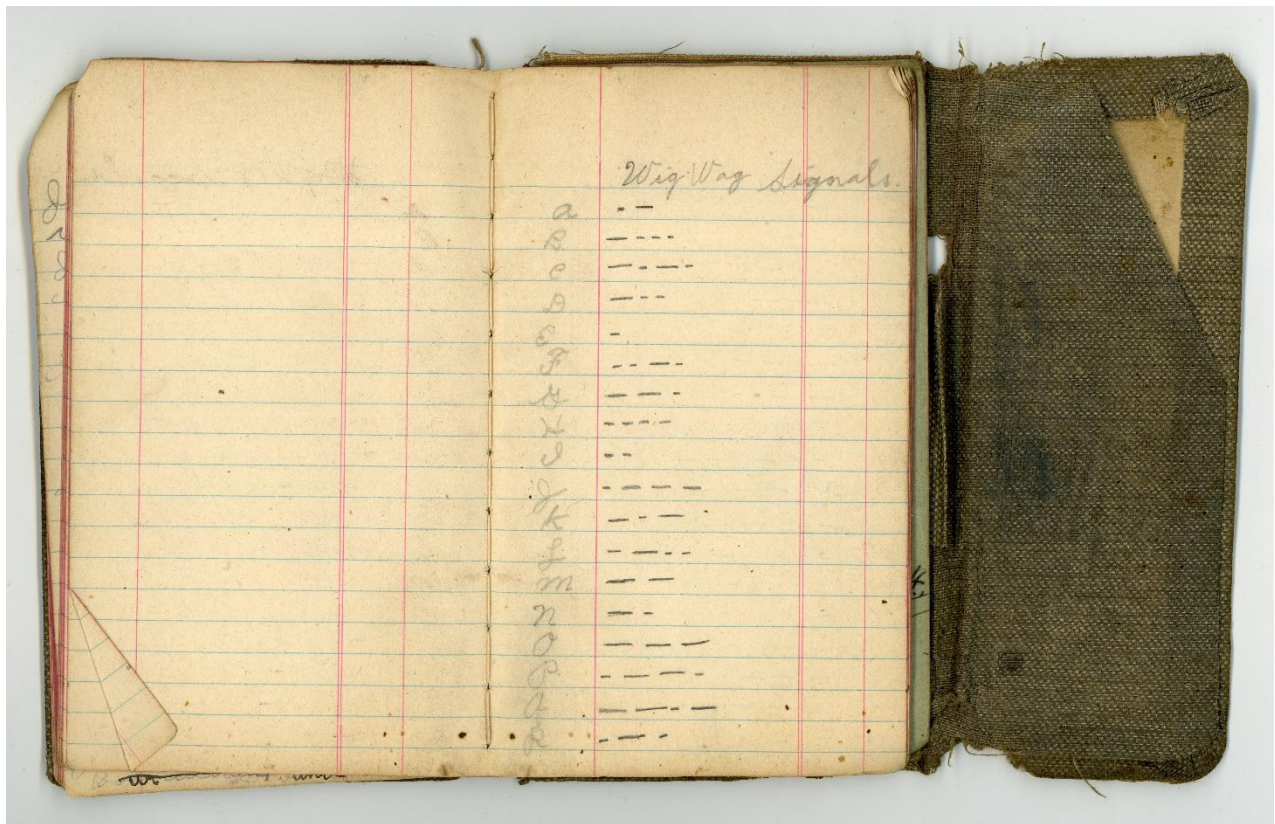 Wig Wag Signals.
a · —
B — · · ·
C — · — ·
D — · ·
E ·
F · · — ·
G — — ·
H · · · ·
I · ·
J · — — —
K — · —
L · — · ·
M — —
N — ·
O — — —
P · — — ·
Q — — · —
R · — ·